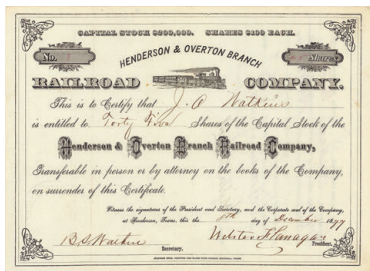 CAPITAL STOCK $200,000. SHARES $100 EACH.
HENDERSON & OVERTON BRANCH
No. Shares
RAILROAD COMPANY.
This is to Certify that J. A. Watkins
is entitled to Forty Five Shares of the Capital Stock of the
Henderson & Overton Branch Railroad Company,
Transferable in person or by attorney on the books of the Company,
on surrender of this Certificate.
Witness the signatures of the President and Secretary, and the Corporate seal of the Company,
at Henderson, Texas, this the 8th day of December 1877
B. S. Wathen Webster Flanagan
Secretary. President.